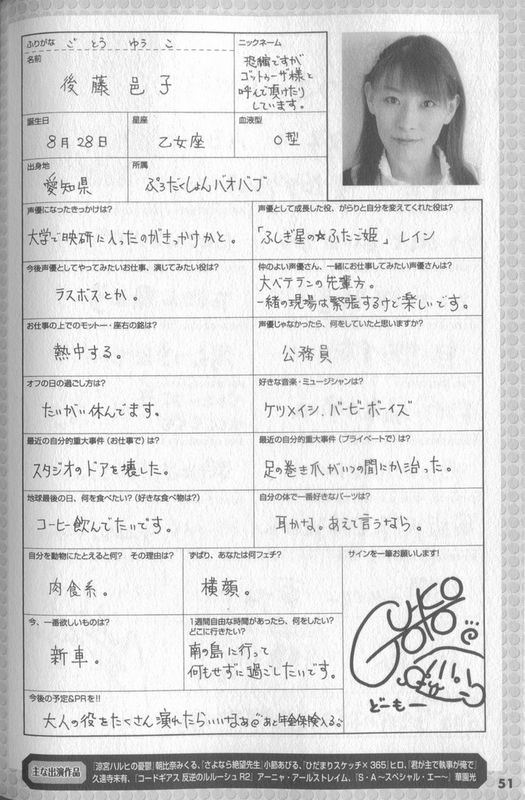 ふりがな ごとう ゆうこ
名前
後藤邑子
ニックネーム
恐縮ですが
ゴットゥーザ様と
呼んで頂けたり
しています。
誕生日
8月28日
星座
乙女座
血液型
O型
出身地
愛知県
所属
ぷろだくしょんバオバブ
声優になったきっかけは?
大学で映研に入ったのがきっかけかと。
声優として成長した役、がらりと自分を変えてくれた役は?
「ふしぎ星の☆ふたご姫」レイン
今後声優としてやってみたいお仕事、演じてみたい役は?
ラスボスとか。
仲のよい声優さん、一緒にお仕事してみたい声優さんは?
大ベテランの先輩方。
一緒の現場は緊張するけど楽しいです。
お仕事の上でのモットー・座右の銘は?
熱中する。
声優じゃなかったら、何をしていたと思いますか?
公務員
オフの日の過ごし方は?
たいがい休んでます。
好きな音楽・ミュージシャンは?
ケツメイシ、バービーボーイズ
最近の自分的重大事件(お仕事で)は?
スタジオのドアを壊した。
最近の自分的重大事件(プライベートで)は?
足の巻き爪がいつの間にか治った。
地球最後の日、何を食べたい?(好きな食べ物は?)
コーヒー飲んでたいです。
自分の体で一番好きなパーツは?
耳かな。あえて言うなら。
自分を動物にたとえると何? その理由は?
肉食系。
ずばり、あなたは何フェチ?
横顔。
サインを一筆お願いします!
GOTO
YUKO
どーもー
今、一番欲しいものは?
新車。
1週間自由な時間があったら、何をしたい?
どこに行きたい?
南の島に行って
何もせずに過ごしたいです。
今後の予定&PRを!!
大人の役をたくさん演れたらいいなぁ@あと年金保険入る。
主な出演作品
『涼宮ハルヒの憂鬱』朝比奈みくる、『さよなら絶望先生』小節あびる、『ひだまりスケッチ×365』ヒロ、『君が主で執事が俺で』
久遠寺未有、『コードギアス 反逆のルルーシュR2』アーニャ・アールストレイム、『S・A~スペシャル・エー~』華園光
51